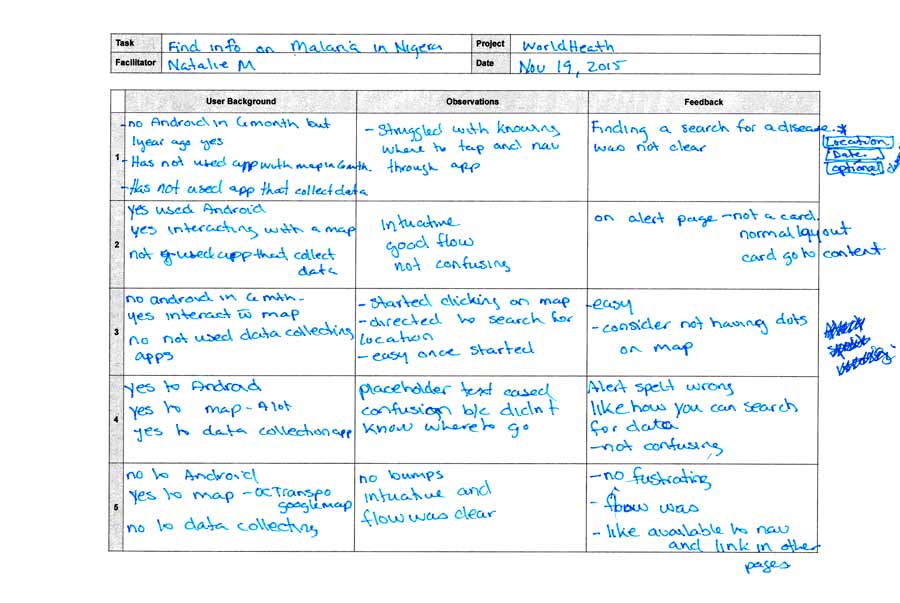 Task Find info on Malaria in Nigera Project WorldHeath
Facilitator Natalie M Date Nov 19, 2015
User Background Observations Feedback
1
-no Android in 6 month but
1 year ago yes
-Has not used app with map in 6 mth.
-Has not used app that collect data
-Struggled with knowing
where to tap and nav
through app
Finding a search for a disease.*
was not clear
Location
Date
optional
2
yes used Android
yes interacting with a map
not used app that collect
data
Intuative
good flow
not confusing
on alert page -not a card.
normal layout
card go to content
3
no android in 6 mth-
yes interact w map
no not used data collecting
apps
-Started clicking on map
-directed to search for
location
-easy once started
-easy
-consider not having dots
on map
4
yes to Android
yes to map - Alot
yes to data collection app
placeholder text cased
confusion b/c didn't
know where to go
Alert spelt wrong
like how you can search
for data
-not confusing
5
no to Android
yes to map -OCTranspo
googlemap
no to data collecting
no bumps
intuative and
flow was clear
-no fustrating
- flow was
-like available to nav
and link in other
pages